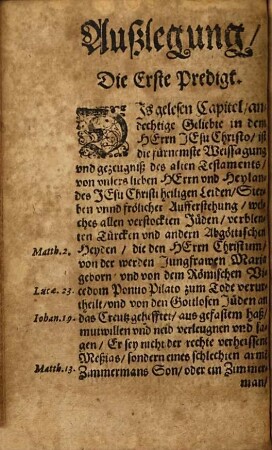 Außlegung/
Die Erste Predigt.
DIs gelesen Capitel/ an-
dechtige Geliebte in dem
HErrn JEsu Christo/ ist
die fürnemste Weissagung
vnd gezeugniß des alten Testaments/
von vnsers lieben HErrn vnd Heylan-
des JEsu Christi heiligen Leiden/ Ster-
ben vnnd frölicher Aufferstehung/ wel-
ches allen verstockten Jüden/ verblen-
ten Türcken vnd andern Abgöttischen
Matth. 2. Heyden/ die den HErrn Christum/
von der werden Jungfrawen Maria
geborn/ vnd von dem Römischen Vi-
Lucæ. 23. cedom Pontio Pilato zum Tode verur-
theilt/ vnd von den Gottlosen Jüden an
Iohan. 19. das Creutz gehefftet/ aus gefastem haß/
mutwillen vnd neid verleugnen vnd sa-
gen/ Er sey nicht der rechte verheissene
Meßias/ sondern eines schlechten armē
Matth. 13. Zimmermans Son/ oder ein Zimmer-
man/